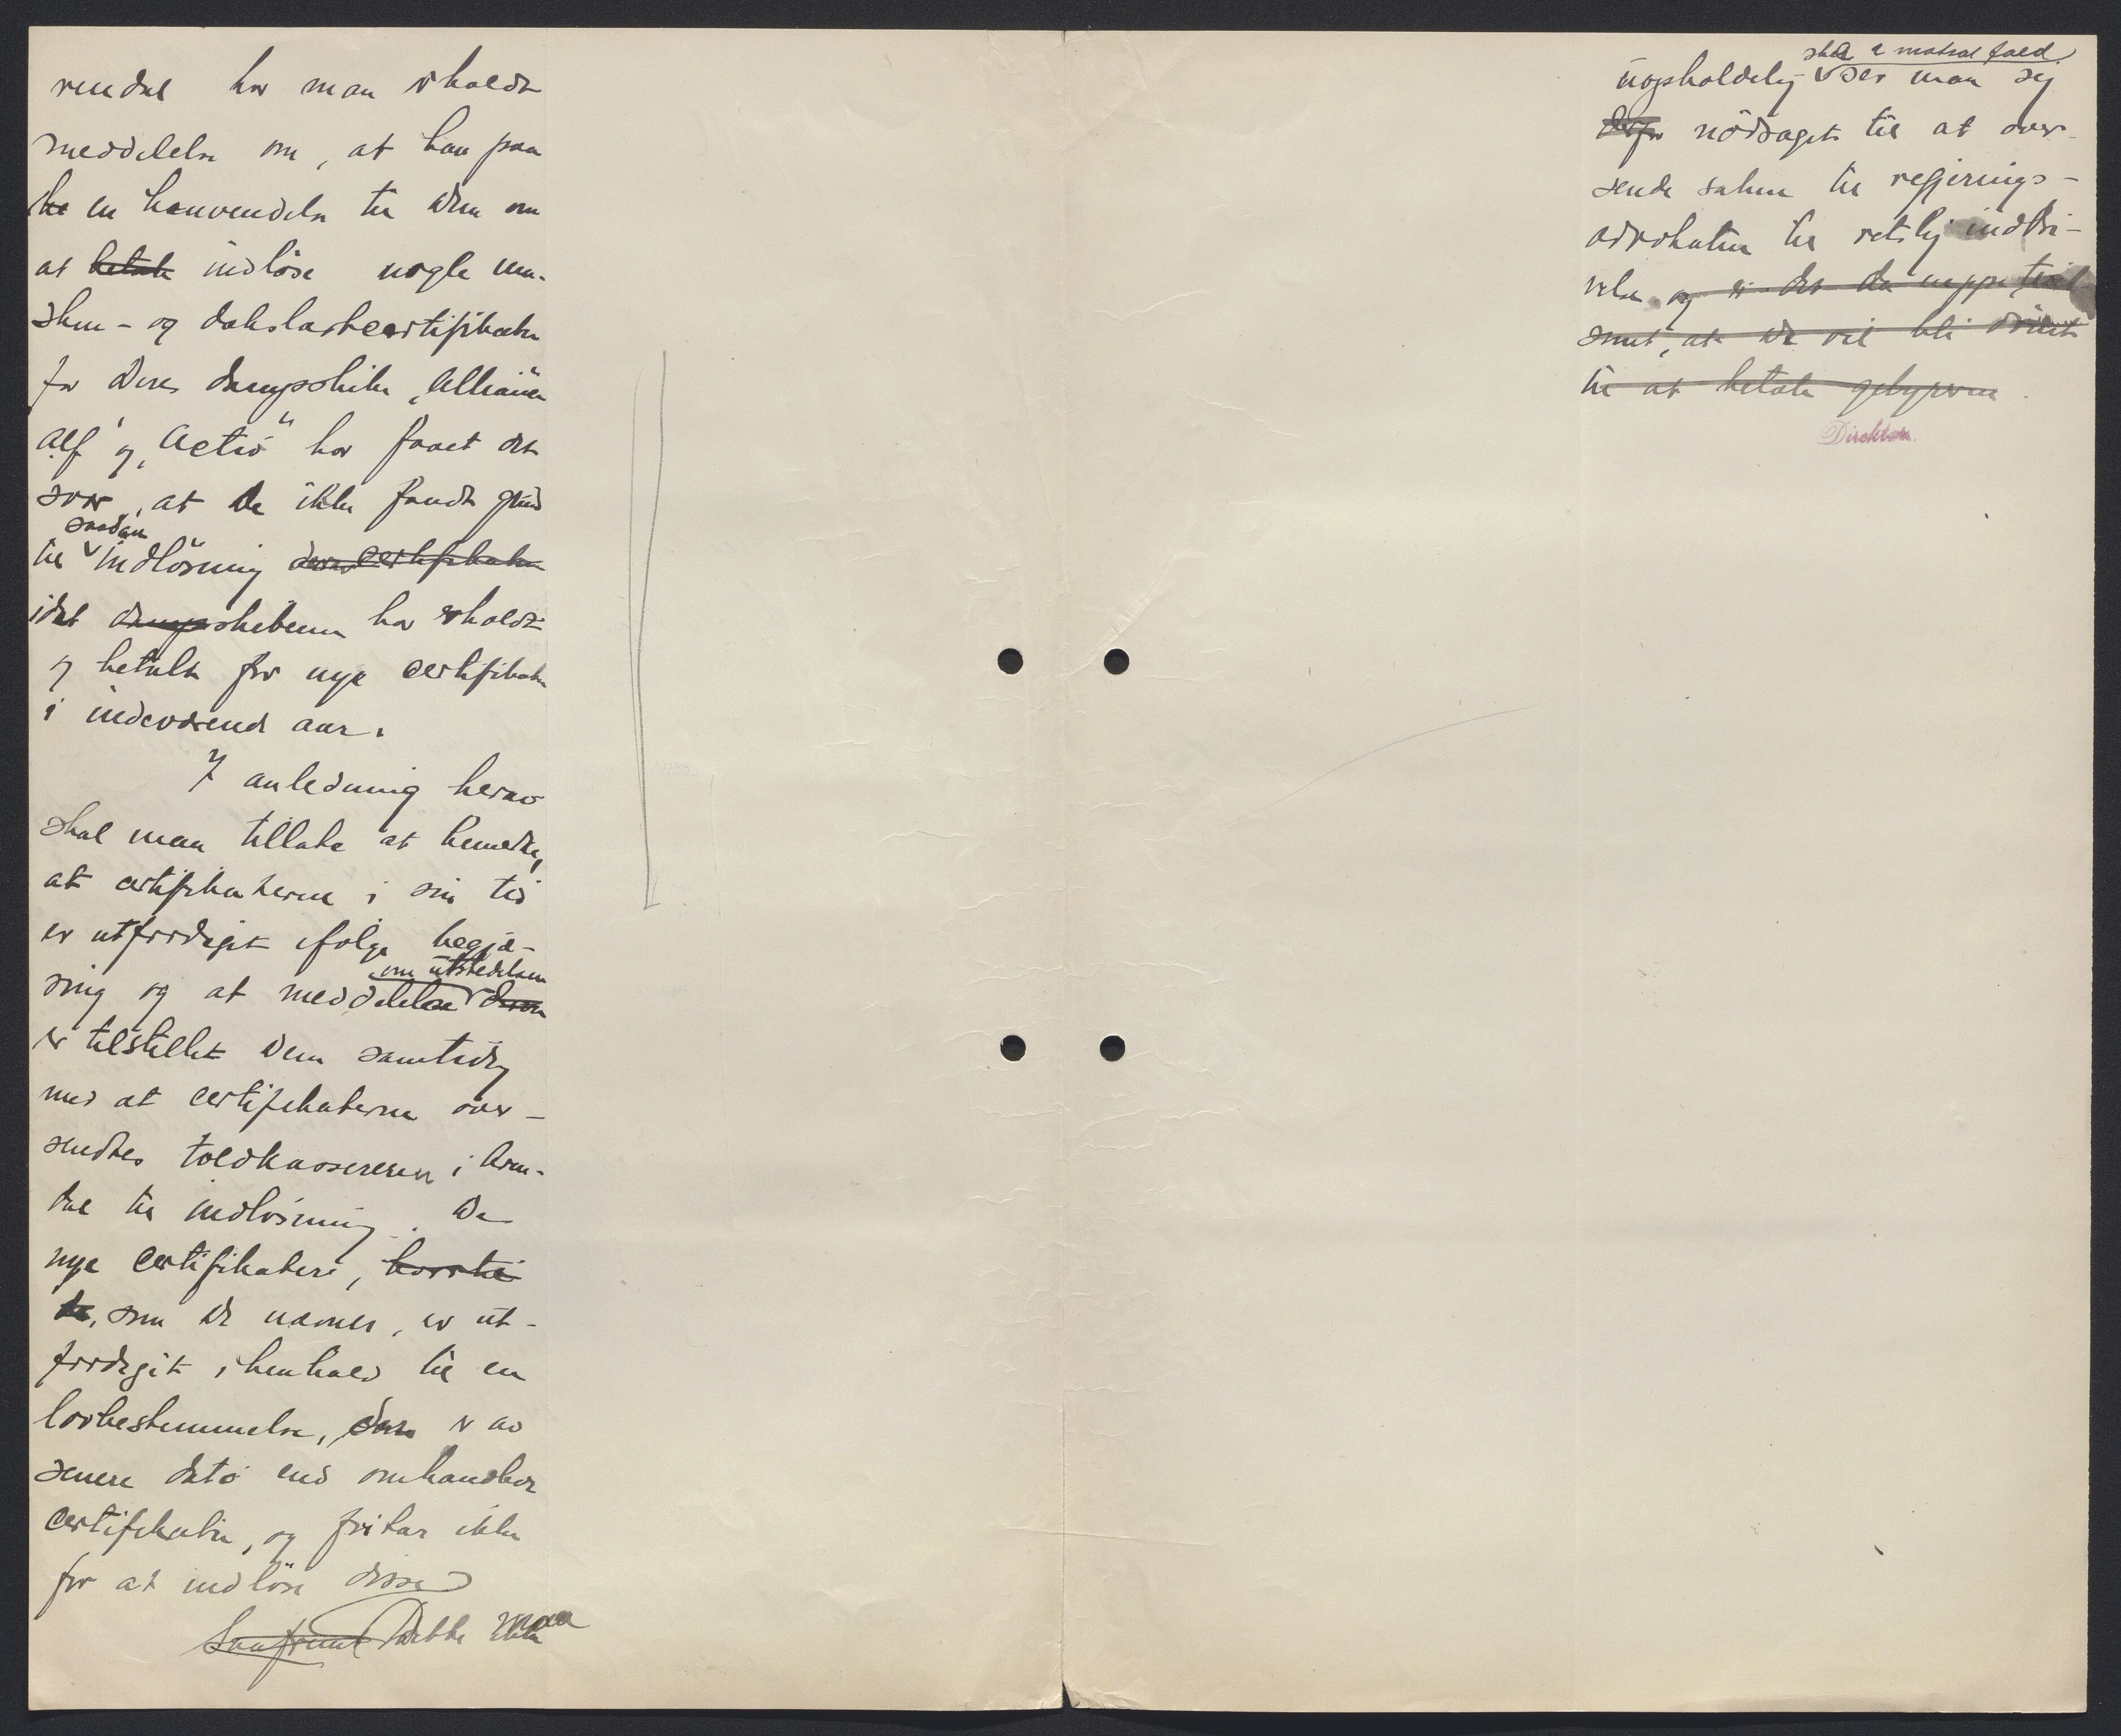 rendal har man erholdt
meddelelse om, at han paa
ha en henvendelse til Dem om
at betale indløse nogle ma-
skin- og dækslastcertifikater
for Deres dampskibe „Alliance"
Alf" og „Activ" har faaet det
svar, at De ikke fandt grund
saadan
til indløsning deres certifikater
idet dampskibene har erholdt
og betalt for nye certifikater
i indeværende aar.
I anledning herav
skal man tillate at bemerke,
at certifikaterne i sin tid
er utfærdiget ifølge begjæ-
om utstedelsen
ring og at meddelelse derom
er tilstillet Dem samtidig
med at certifikaterne over-
sendtes toldkassereren i Aren-
dal til indløsning. De
nye certifikater,
de, som De nævner, er ut-
færdiget i henhold til en
lovbestemmelse, som er av
senere dato end omhandlede
certifikater, og fritar ikke
for at indløse disse
Saafremt Dette
skal i motsat fald
uopholdelig ser man sig
derfor nødsaget til at over-
sende saken til regjerings-
advokaten til retslig inddri-
velse og er det da neppe tvil-
somt, at De vil bli dømt
til at betale gebyrerne.
Direktør.